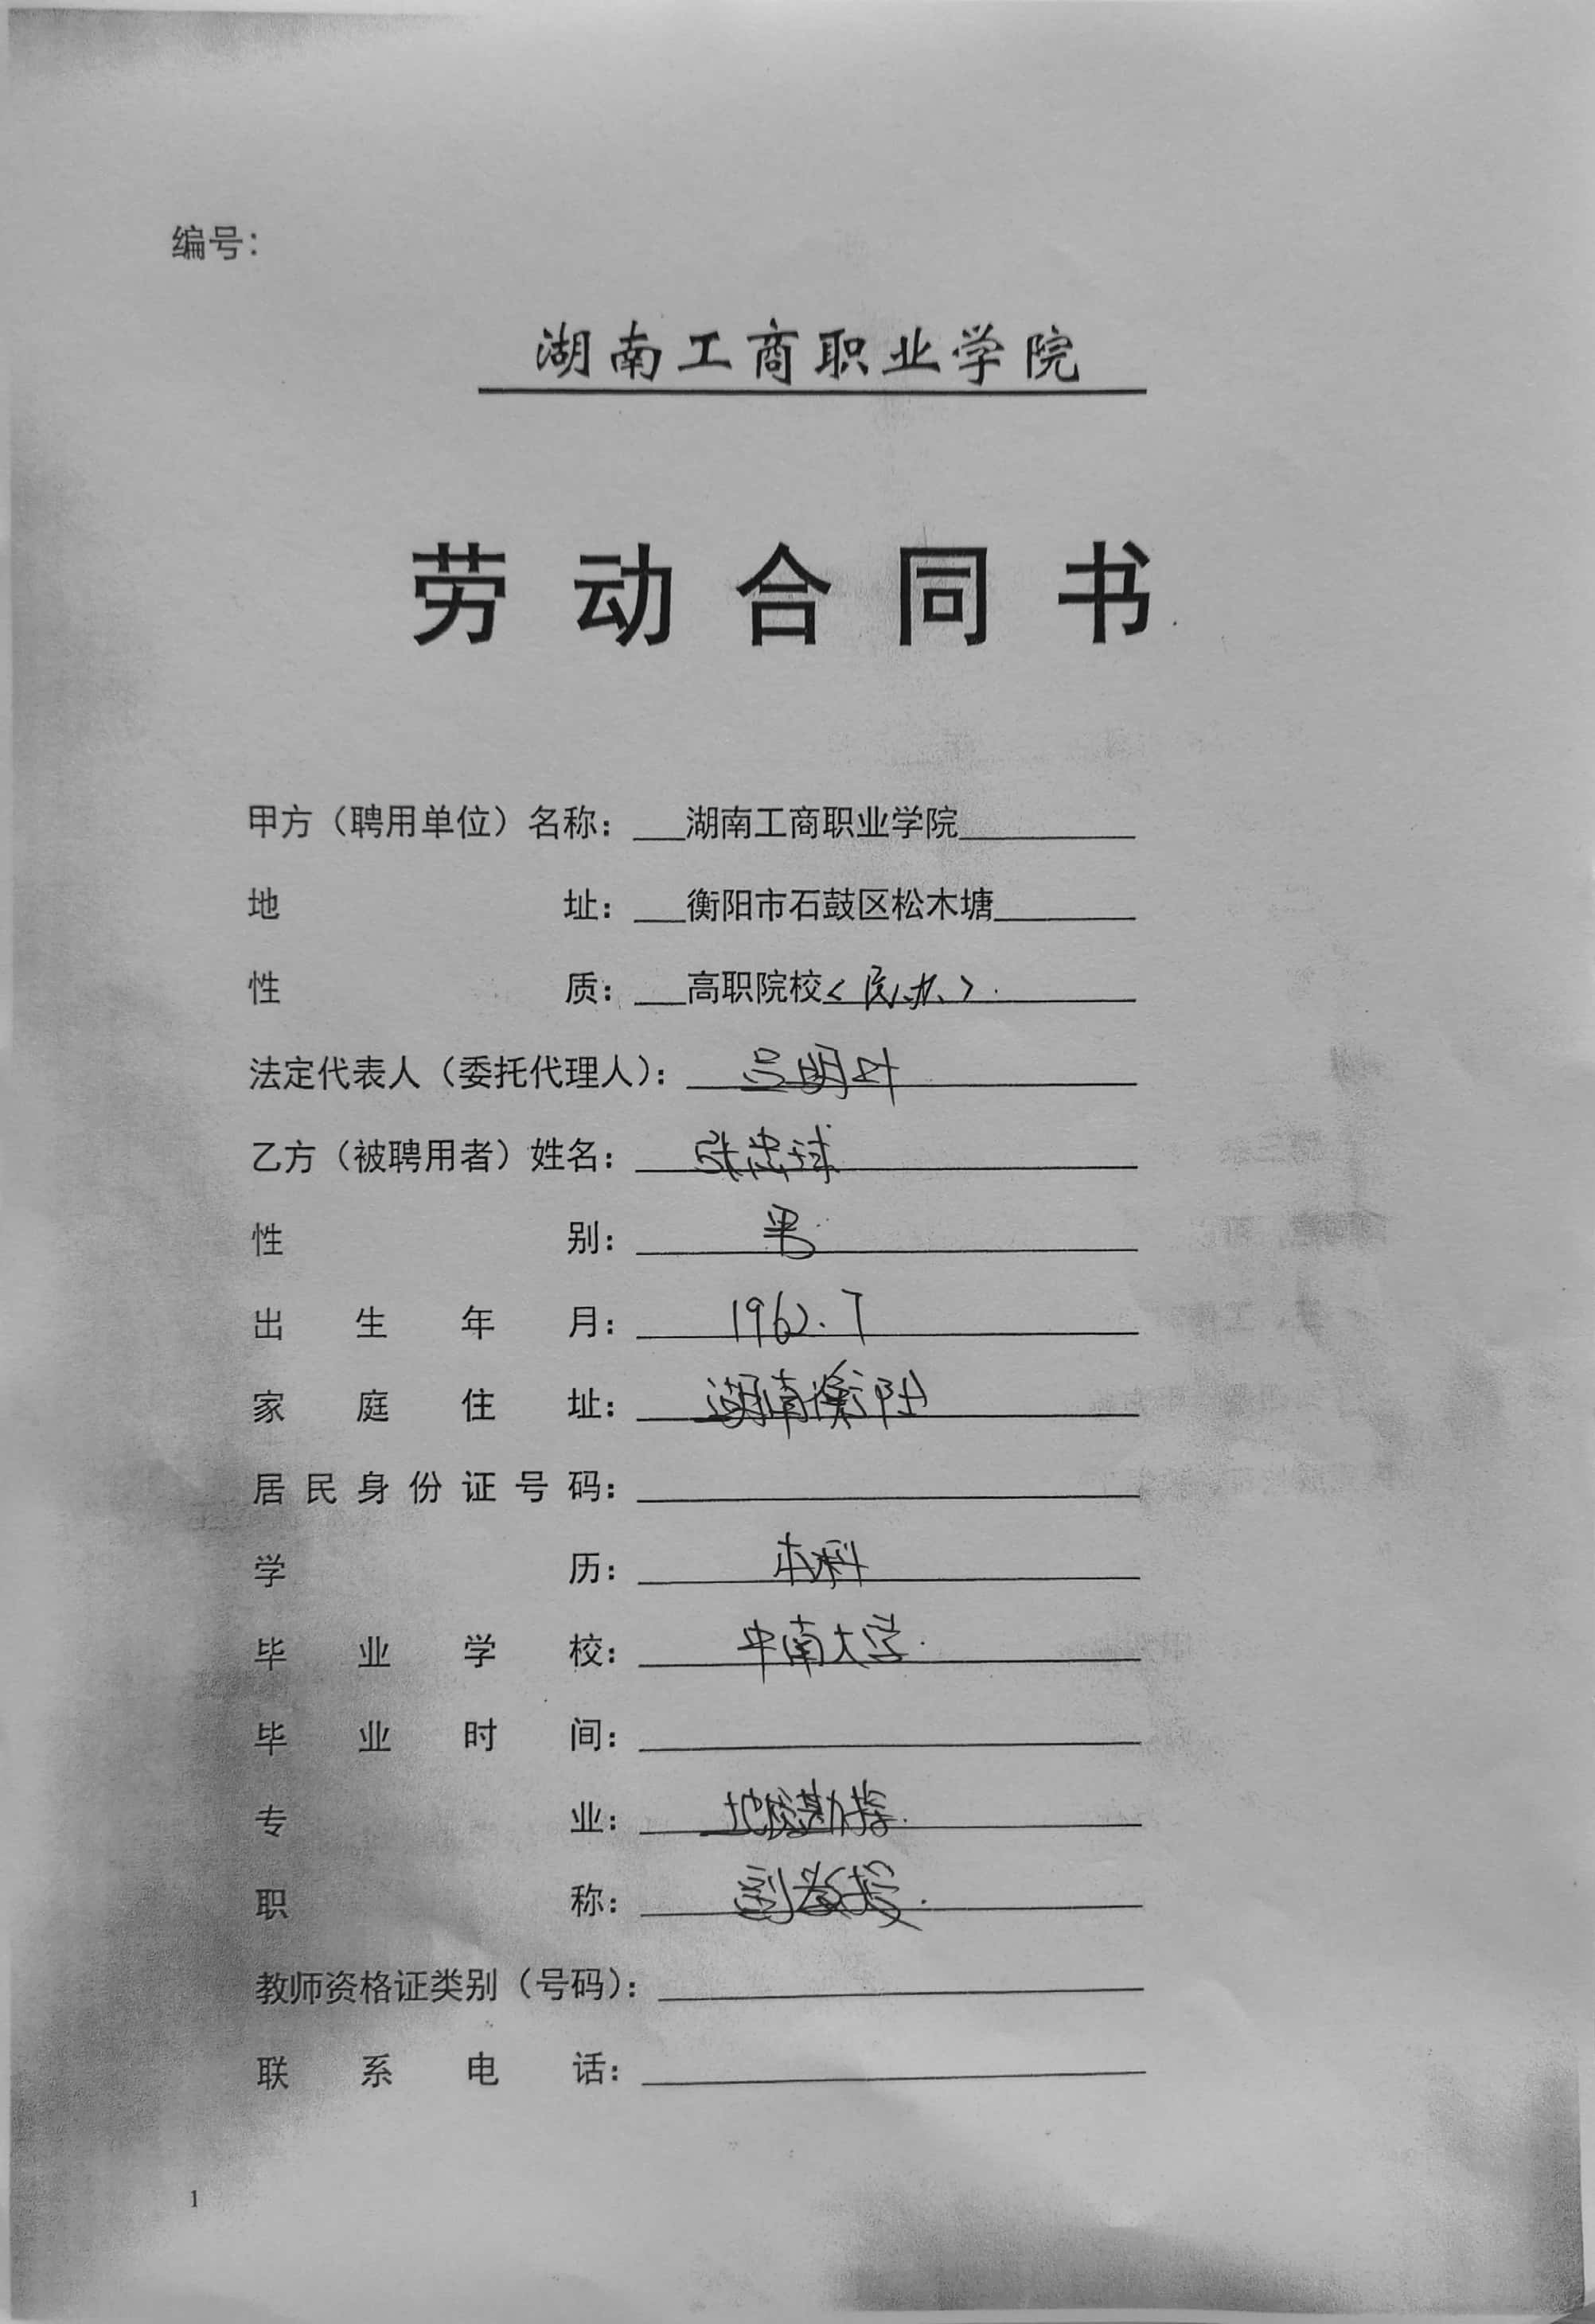 编号：
湖南工商职业学院
劳动合同书
甲方（聘用单位）名称：湖南工商职业学院
地址：衡阳市石鼓区松木塘
性质：高职院校<民办>.
法定代表人（委托代理人）：吕明叶
乙方（被聘用者）姓名：张忠球
性别：男
出生年月：1962.7
家庭住址：湖南衡阳
居民身份证号码：
学历：本科
毕业学校：中南大学.
毕业时间：
专业：地质勘探.
职称：副教授.
教师资格证类别（号码）：
联系电话：
1